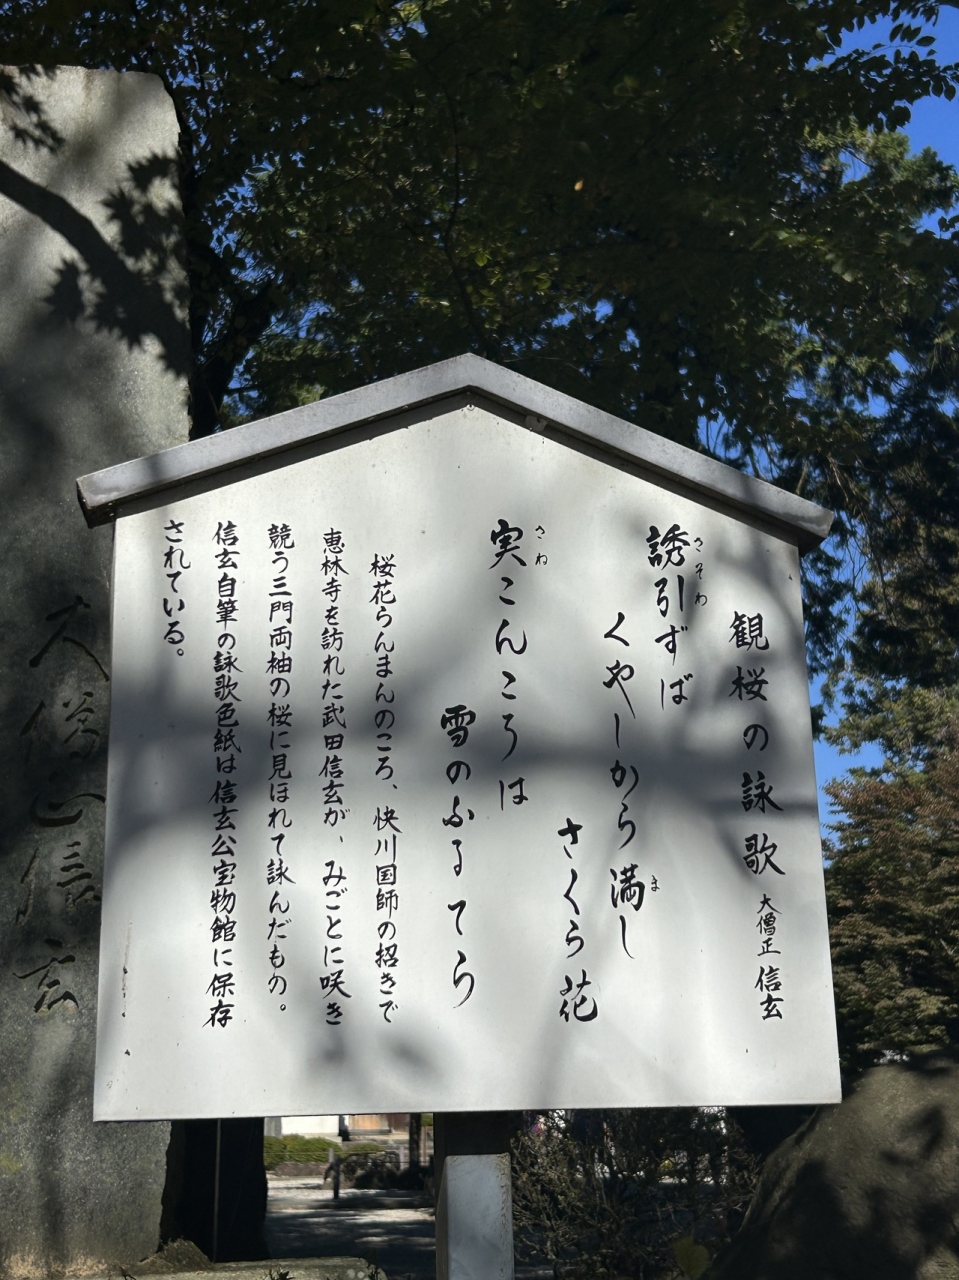 観桜の詠歌 大僧正 信玄
誘引ずば
さそわ
くやしからまし
満し
ま
さくら花
実こんころは
さね
雪のふるてら
桜花らんまんのころ、快川国師の招きで
恵林寺を訪れた武田信玄が、みごとに咲き
競う三門両袖の桜に見ほれて詠んだもの。
信玄自筆の詠歌色紙は信玄公宝物館に保存
されている。
大僧正信玄